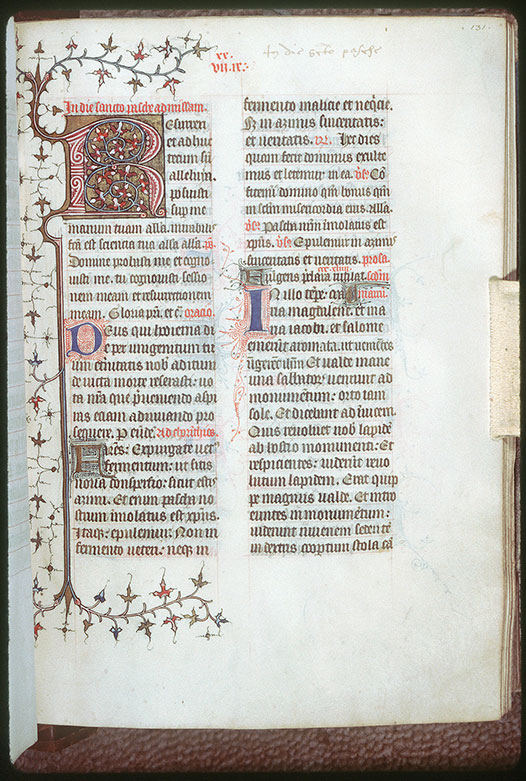 131.
In die sc̄to pasche
xx.
vii.ix.
In die sancto pasche ad missam.
Resurrexi
et adhuc
tecum sū
alleluya.
posuisti
sup me
manum tuam alla. mirabilis
fc̄a est sciencia tua alla alla. ps.
Domine probasti me et cogno
uisti me. tu cognouisti sessio
nem meam et resurrectionem
meam. Gloria pr̄i. et c̄. oracio.
Deus qui hodierna di
e per unigenitum tu
um eternitatis nob aditum
deuicta morte reserasti: uo
ta nr̄a que p̄ueniendo aspi
ras eciam adiuuando pro
sequere. p eūde. Ad chorinthios.
Fratres: Expurgate uet9
fermentum: ut sitis
noua consp̄sio: sicut estis
azimi. Et enim pascha no
strum imolatus est xp̄us.
Itaq; epulemur. Non in
fermento ueteri: neq; in
fermento malicie et neq̄cie.
Sz in azimis sinceritatis:
et ueritatis. Hec dies
quam fecit dominus exulte
mus et letemur in ea. v̄s. Cō
fitemī domino qm̄ bonus qm̄
in sc̄lm misericordia eius. Alla.
v̄s. Pascha nr̄m imolatus est
xp̄us. v̄s. Epulemur in azimis
sinceritatis et ueritatis. prosa.
Fulgens p̄clara rutilat. scdm
marcū.
In illo tēpr̄. Ma
ria magdalene. et ma
ria iacobi. et salome
emerūt aromata. ut uenietes
ūgerēt ihm̄ Et valde mane
una sabbatoꝝ ueniunt ad
monumentum: orto iam
sole. Et dicebant ad īuicem.
Quis reuoluet nob lapidē
ab hostio monumenti. Et
respicientes: uiderūt reuo
lutum lapidem. Erat quip
pe magnus ualde. Et intro
euntes in monumētum:
uiderunt iuuenem sedētē
in dextris coopertum stola cā